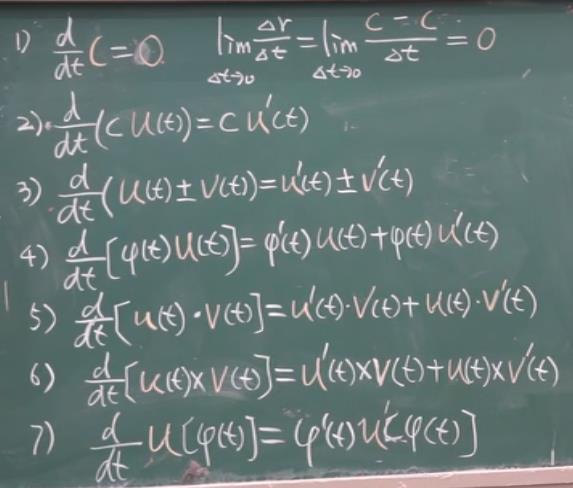 1) d/dt C = 0 lim Δt→0 Δr/Δt = lim Δt→0 (C - C)/Δt = 0
2) d/dt (C u(t)) = C u'(t)
3) d/dt (u(t) ± v(t)) = u'(t) ± v'(t)
4) d/dt [φ(t) u(t)] = φ'(t) u(t) + φ(t) u'(t)
5) d/dt [u(t) · v(t)] = u'(t) · v(t) + u(t) · v'(t)
6) d/dt [u(t) × v(t)] = u'(t) × v(t) + u(t) × v'(t)
7) d/dt u[φ(t)] = φ'(t) u'[φ(t)]